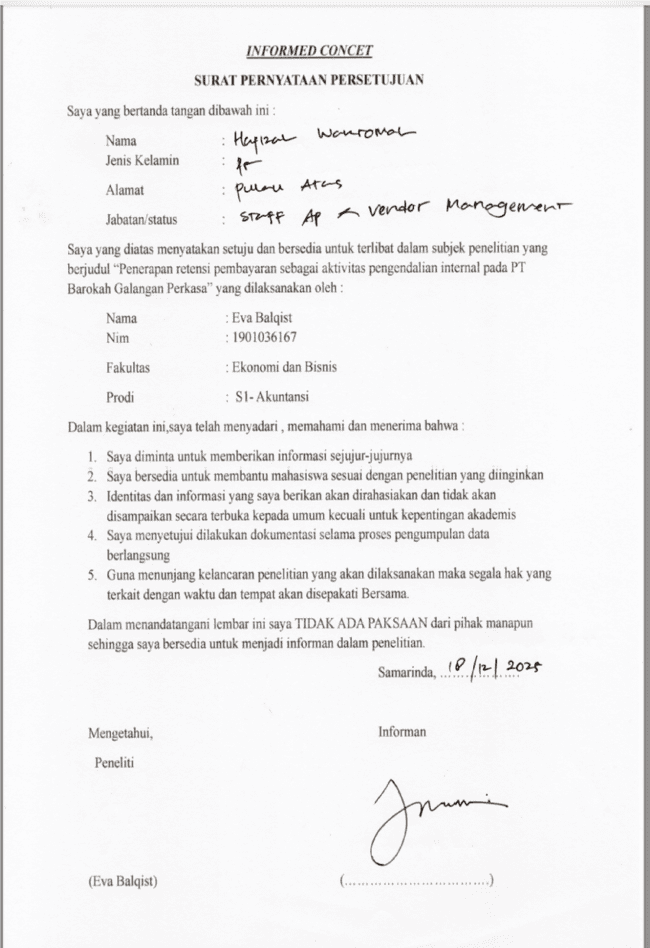 INFORMED CONCET
SURAT PERNYATAAN PERSETUJUAN
Saya yang bertanda tangan dibawah ini :
Nama :
Jenis Kelamin :
Alamat : Pulau Atas
Jabatan/status : Staff AP & Vendor Management
Saya yang diatas menyatakan setuju dan bersedia untuk terlibat dalam subjek penelitian yang
berjudul “Penerapan retensi pembayaran sebagai aktivitas pengendalian internal pada PT
Barokah Galangan Perkasa” yang dilaksanakan oleh :
Nama : Eva Balqist
Nim : 1901036167
Fakultas : Ekonomi dan Bisnis
Prodi : S1- Akuntansi
Dalam kegiatan ini,saya telah menyadari , memahami dan menerima bahwa :
1. Saya diminta untuk memberikan informasi sejujur-jujurnya
2. Saya bersedia untuk membantu mahasiswa sesuai dengan penelitian yang diinginkan
3. Identitas dan informasi yang saya berikan akan dirahasiakan dan tidak akan
disampaikan secara terbuka kepada umum kecuali untuk kepentingan akademis
4. Saya menyetujui dilakukan dokumentasi selama proses pengumpulan data
berlangsung
5. Guna menunjang kelancaran penelitian yang akan dilaksanakan maka segala hak yang
terkait dengan waktu dan tempat akan disepakati Bersama.
Dalam menandatangani lembar ini saya TIDAK ADA PAKSAAN dari pihak manapun
sehingga saya bersedia untuk menjadi informan dalam penelitian.
Samarinda, 18/12/2025
Mengetahui, Informan
Peneliti
(Eva Balqist) (................................)